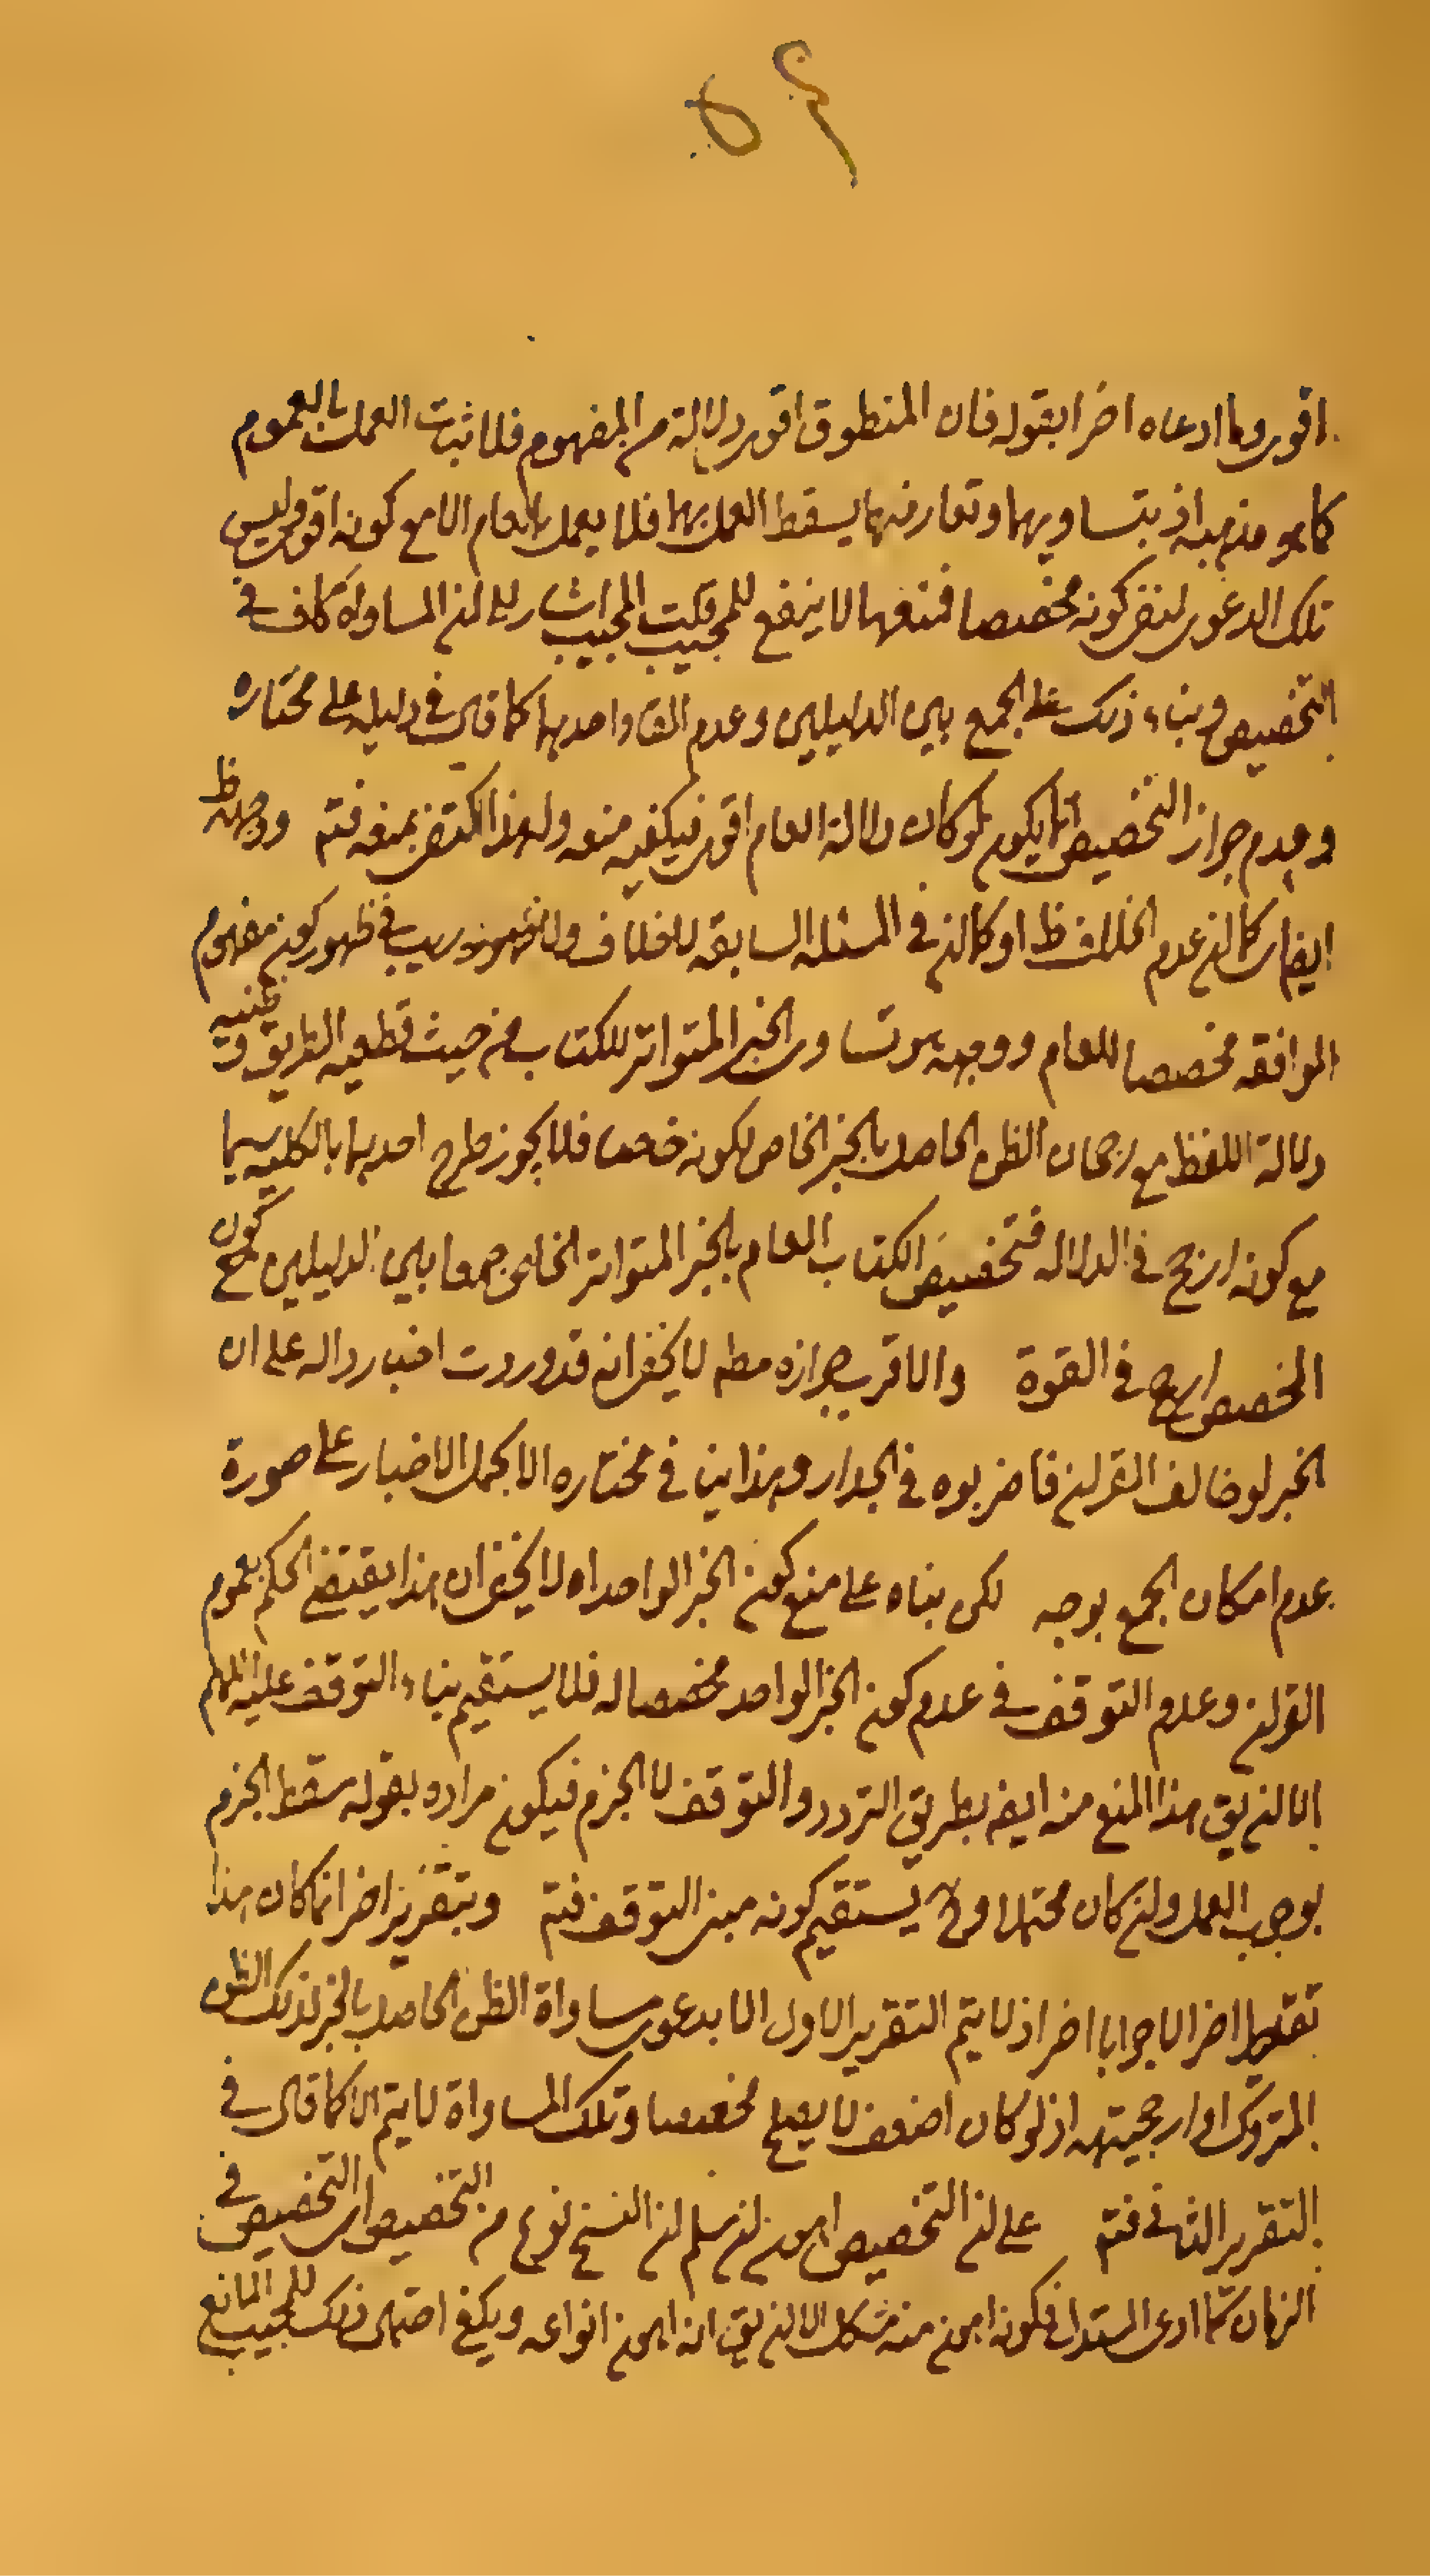 اقوى وما ادعاه اخرا بقوله فان المنطوق اقوى دلالة من المفهوم فلاثبات العمل بالعموم
كما هو مذهبه اذ بتساويهما وتعارضهما يسقط العمل بهما فلا يعمل بالعام الا مع كونه اقوى وليس
تلك الدعوى لنفى كونه مخصصا فمنعها لا ينفع للمجيب قلت المجيب اشار الى ان المساواة كاف فى
التخصيص وبناء ذلك على الجمع بين الدليلين وعدم القاء احدهما كما قال فى دليله على مختاره
وعدم جواز التخصيص انما يكون لو كان دلالة العام اقوى فيكفيه منعه ولهذا اكتفى بمنعه فتم ووجهه ظ
ايضا كان عدم الخلاف ظ او كان فى المسئله السابقه للخلاف ولا ريب فى ظهور كون مفهوم
الموافقه مخصصا للعام ووجهه هو تساوى الخبر المتواتر للكتاب من حيث قطعيه الطريق وظنيه
دلالة اللفظ مع رجحان الظن الحاصل بالخبر الخاص لكونه فلا يجوز طرح احدهما بالكليه سيما
مع كونه ارجح فى الدلاله فتخصيص الكتاب العام بالخبر المتواتر الخاص جمعا بين الدليلين مع كون
المخصص ارجح فى القوة والاقرب جوازه مطه لا يخفى انه قد وردت اخبار داله على ان
الخبر لو خالف القران فاضربوه فى الجدار وهذا ينافى مختاره الا بحمل الاخبار على صورة
عدم امكان الجمع بوجه لكن بناه على منع كون الخبر الواحد اه لا يخفى ان هذا يقتضى الحكم بعموم
القران وعدم التوقف فى عدم كون الخبر الواحد مخصصا له فلا يستقيم بناء التوقف عليه اللهم
الا ان يق هذا المنع منه ايضه بطريق التردد والتوقف لا الجزم فيكون مراده بقوله سقط الجزم
بوجوب العمل وان كان محتملا وح يستقيم كونه مبنى التوقف فتم وبتقرير اخر انما كان هذا
تقريرا اخر لا جوابا اخر اذ لا يتم التقرير الاول الا بدعوى مساواة الظن الحاصل بالخبر لذلك الظن
المتروك او ارجحيته اذ لو كان اضعف لا يصلح مخصصا وتلك المساواة لا يتم الا كما قال فى
التقرير الثانى فتم على ان التخصيص اهون ان سلم ان النسخ نوع من التخصيص اى التخصيص فى
الازمان كما ادعى المستدل فكونه اهون منه مشكل الا ان يق انه اهون انواعه ويكفى احتمال ذلك للمجيب المانع